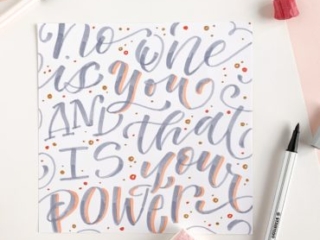 no one
is you
AND that
IS your
POWER